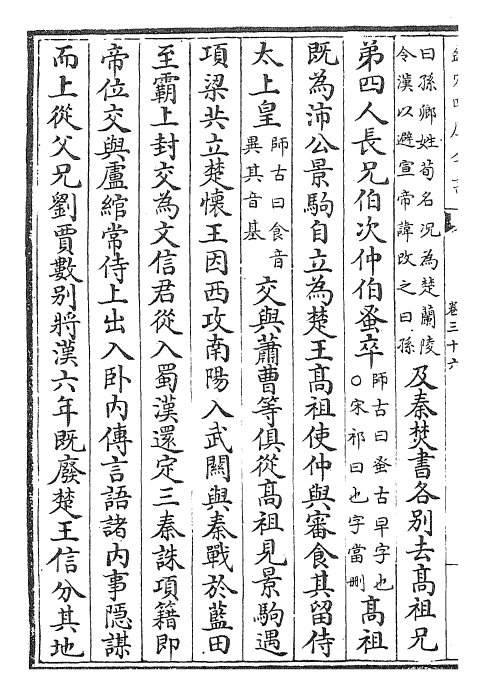 卷三十六
曰孫卿姓荀名況為楚蘭陵
令漢以避宣帝諱改之曰孫
及秦焚書各别去髙祖兄
弟四人長兄伯次仲伯蚤卒
師古曰蚤古早字也
○宋祁曰也字當刪
髙祖
既為沛公景駒自立為楚王髙祖使仲與審食其留侍
太上皇
師古曰食音
異其音基
交與蕭曹等俱從髙祖見景駒遇
項梁共立楚懷王因西攻南陽入武關與秦戰於藍田
至霸上封交為文信君從入蜀漢還定三秦誅項籍即
帝位交與盧綰常侍上出入卧内傳言語諸内事隠謀
而上從父兄劉賈數别將漢六年既廢楚王信分其地